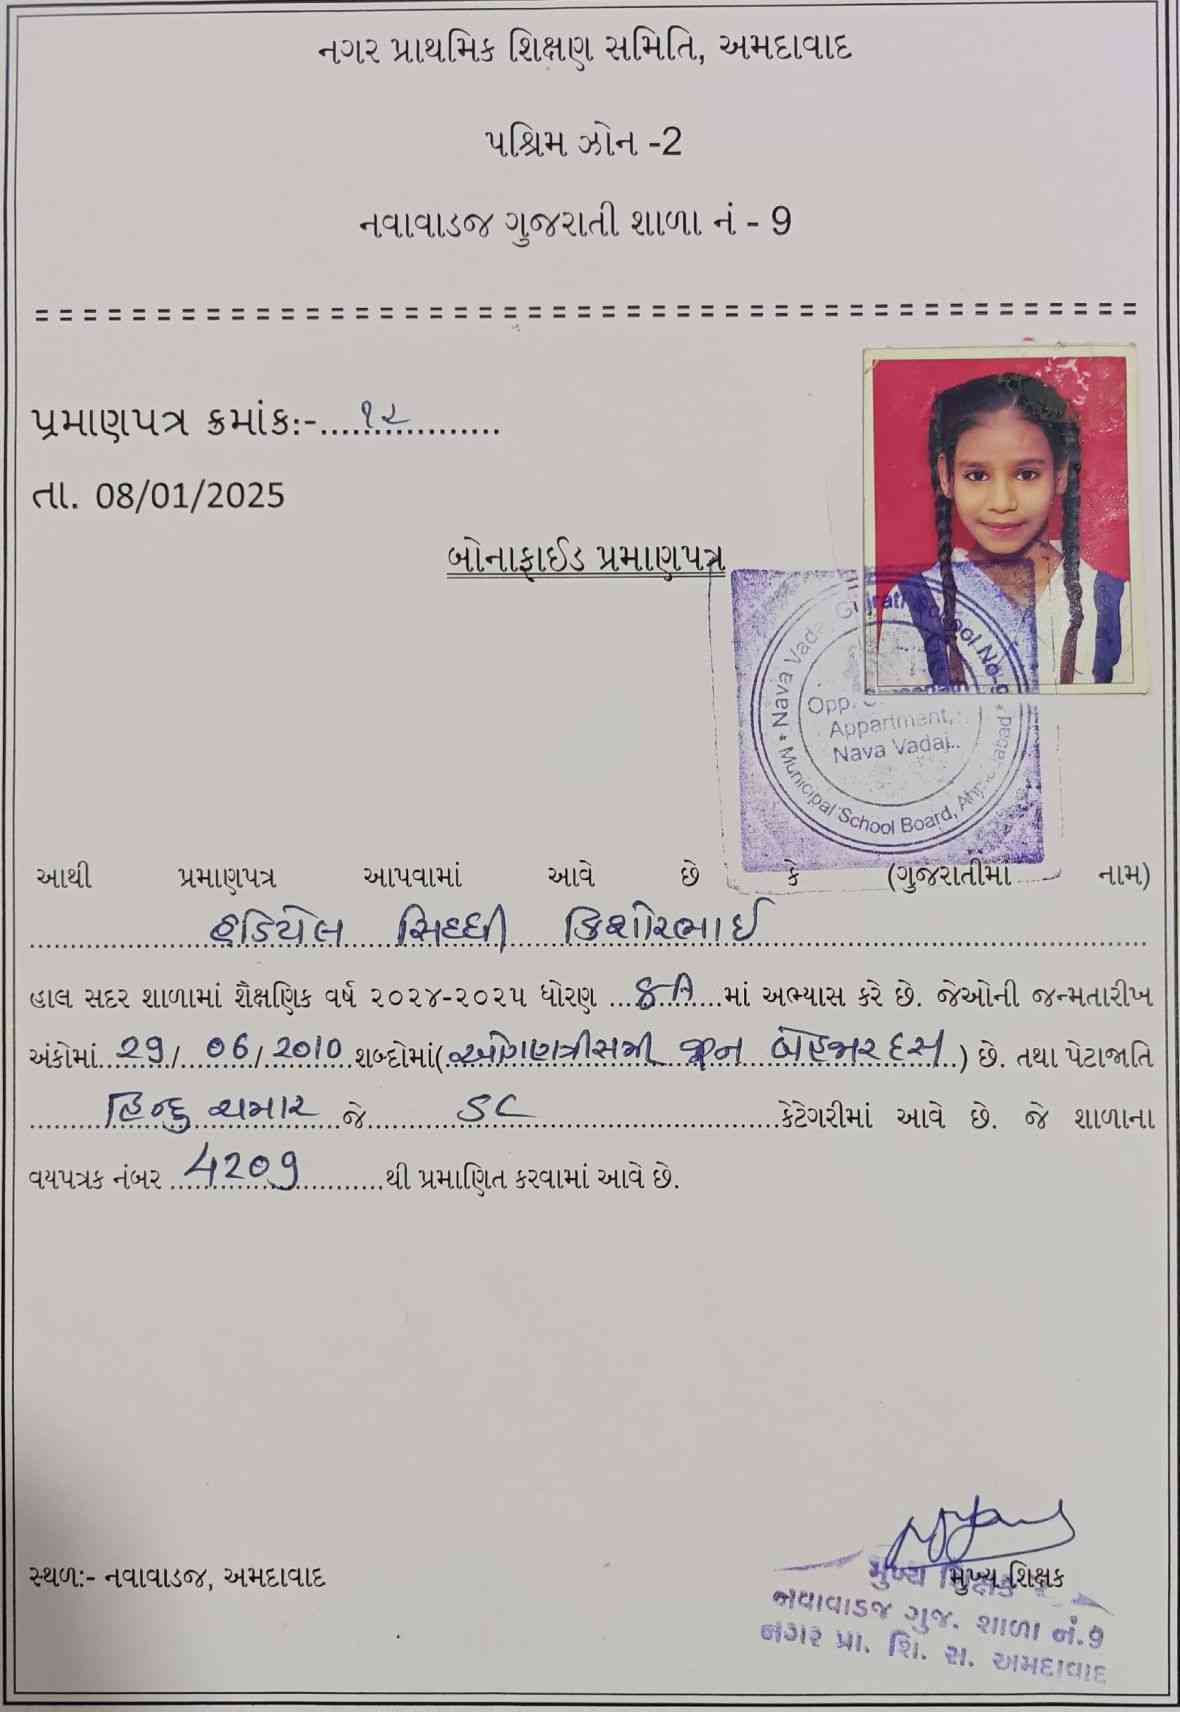 નગર પ્રાથમિક શિક્ષણ સમિતિ, અમદાવાદ
પશ્ચિમ ઝોન -2
નવાવાડજ ગુજરાતી શાળા નં - 9
===============================================
પ્રમાણપત્ર ક્રમાંક:-.....૧૨.....
તા. 08/01/2025
બોનાફાઈડ પ્રમાણપત્ર
Nava Vadaj Gujrati School No-9
Opp.
Appartment,
Nava Vadaj..
* Municipal School Board, Ahmedabad *
આથી પ્રમાણપત્ર આપવામાં આવે છે કે (ગુજરાતીમાં નામ)
હડિયેલ સિધ્ધી કિશોરભાઈ
હાલ સદર શાળામાં શૈક્ષણિક વર્ષ ૨૦૨૪-૨૦૨૫ ધોરણ ...8-A...માં અભ્યાસ કરે છે. જેઓની જન્મતારીખ
અંકોમાં..29/..06/.2010.શબ્દોમાં(..ઓગણત્રીસમી જૂન બેહજાર દસ..) છે. તથા પેટાજાતિ
હિન્દુ ચમાર જે SC કેટેગરીમાં આવે છે. જે શાળાના
વયપત્રક નંબર ...4209...થી પ્રમાણિત કરવામાં આવે છે.
સ્થળ:- નવાવાડજ, અમદાવાદ
મુખ્ય શિક્ષક
મુખ્ય શિક્ષક
નવાવાડજ ગુજ. શાળા નં.9
નગર પ્રા. શિ. સ. અમદાવાદ